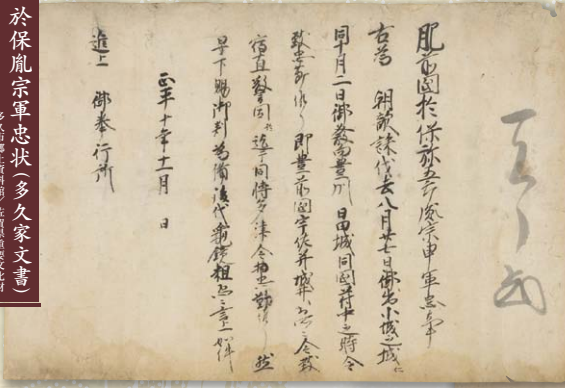 於保胤宗軍忠状(多久家文書)
多久市郷土資料館/佐賀県重要文化財
肥前国於保弥五郎胤宗申軍忠事
右為 朝敵誅伐去八月廿七日御出小城之城ニ
同十月二日御發向豊州 日田城同国府中之時令
致忠節候了即豊前国宇佐并城井
宿直警固 迄于同博多津令抽忠勤候了 然
早下賜御判為備後代亀鏡粗 言上如件
正平十年十一月 日
進上 御奉行所